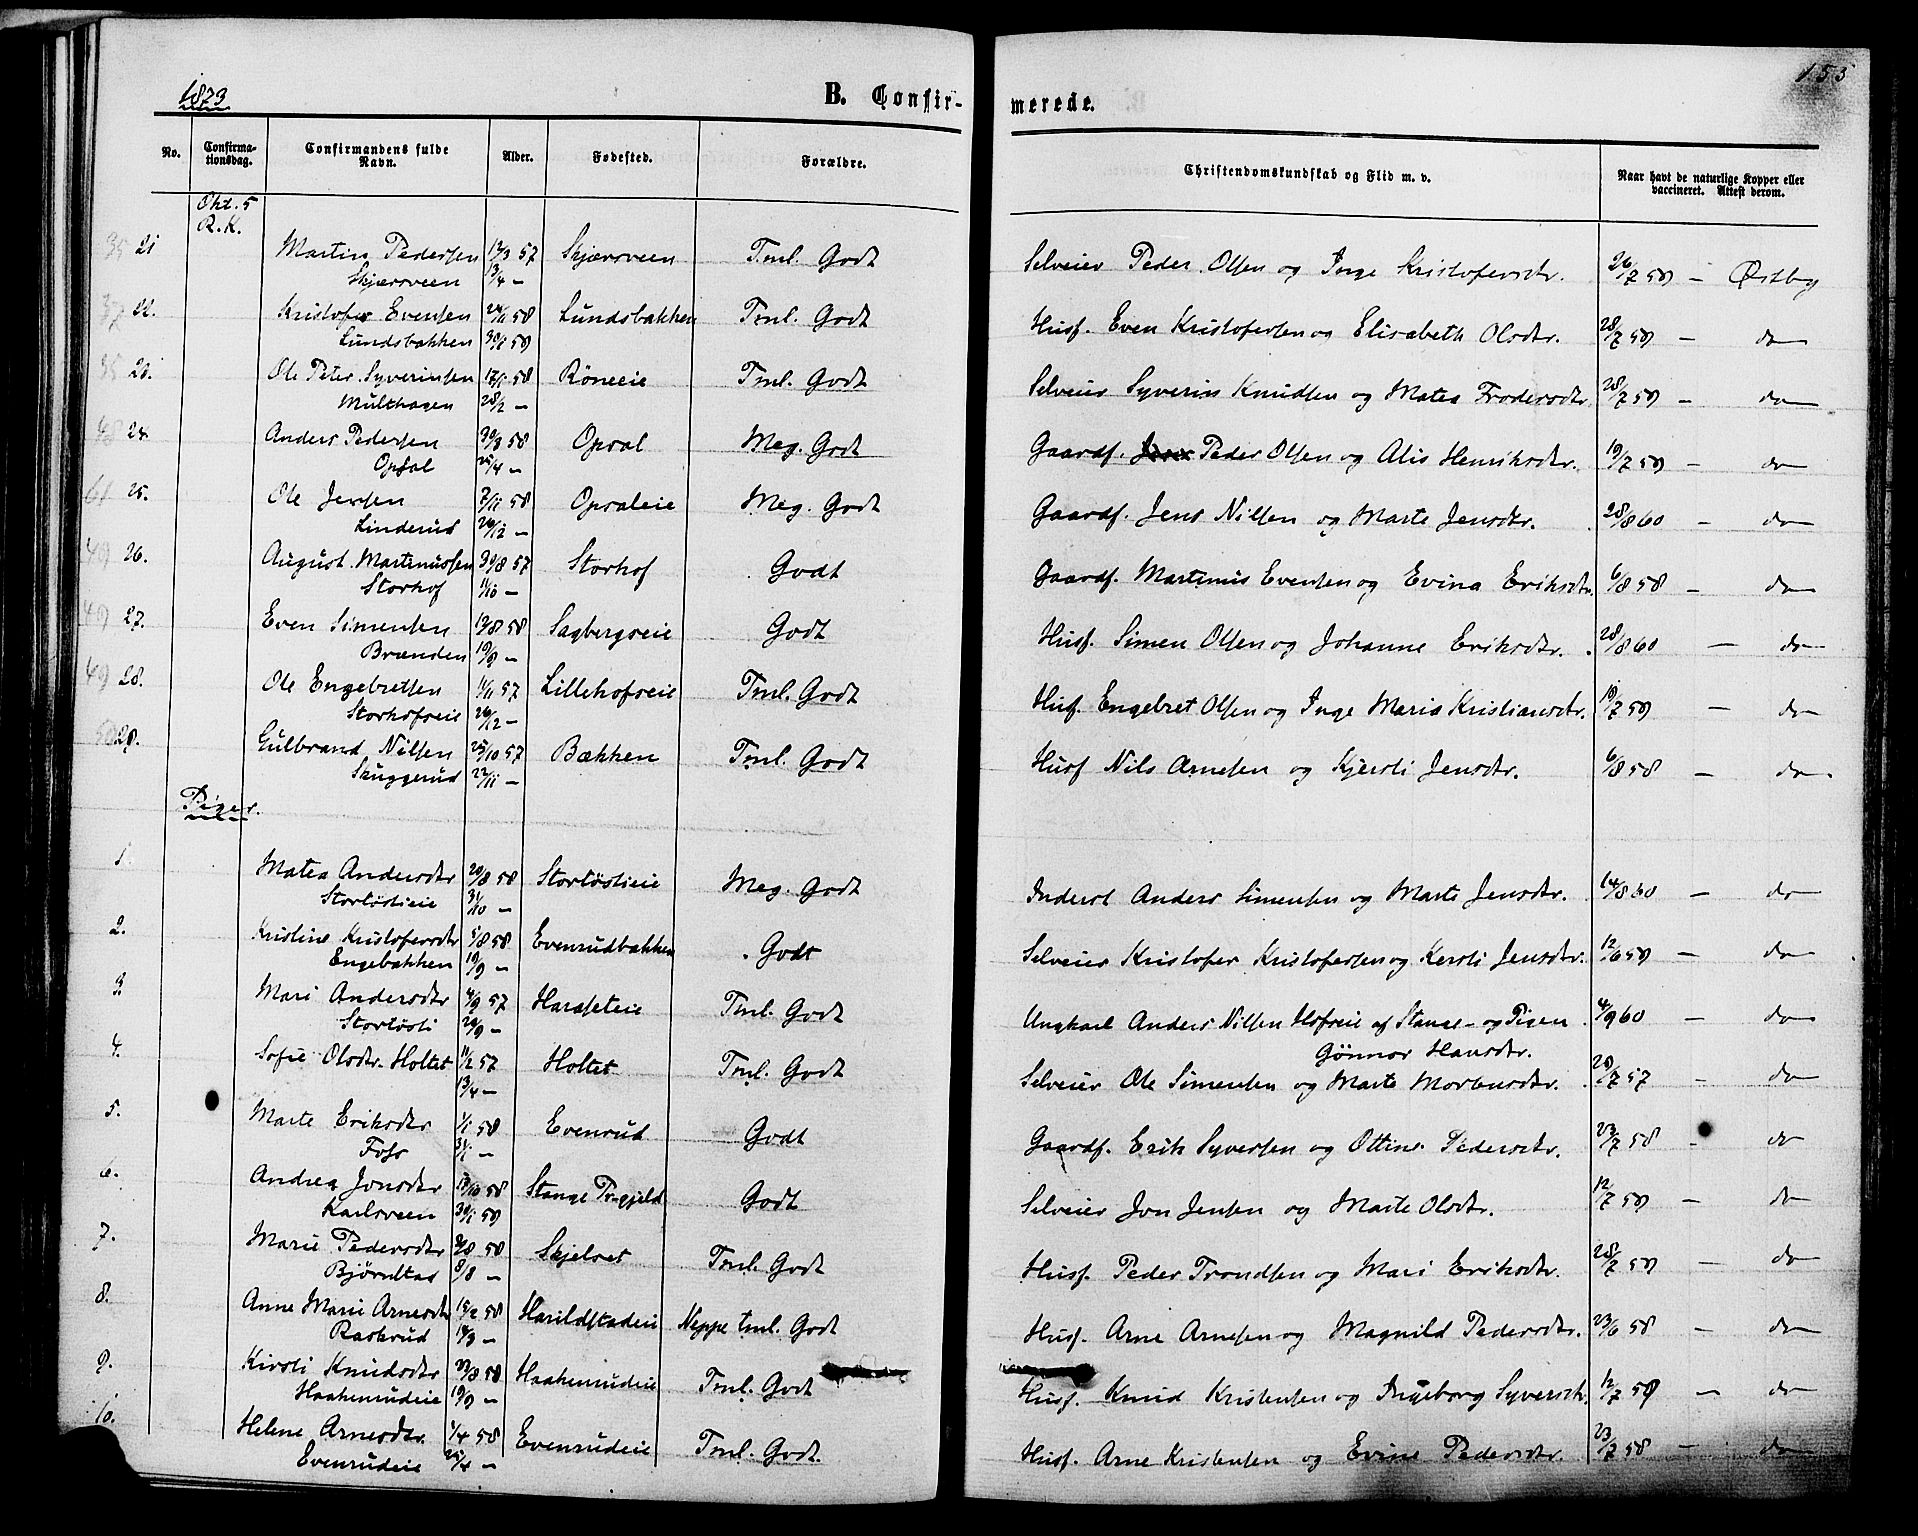 1873
153
B. Confir-
merede.
No.
Confirma-
tionsdag.
Confirmandens fulde
Navn.
Alder.
Fødested.
Forældre.
Christendomskundskab og Flid m. v.
Naar havt de naturlige Kopper eller
vaccineret. Attest derom.
Okt. 5
R. K.
21 Martin Pedersen 57 Skjærsveen Tml. Godt Selveier Peder Olsen og Inge Kristofersdtr. 26/7 59 — Østby
Skjærsveen 13/4 —
22. Kristofer Evensen 24/11 58 Lundsbakken Tml. Godt Husf. Even Kristofersen og Elisabeth Olsdtr. 28/7 59 — do
Lundsbakken 30/1 59
23. Ole Peter Syverinsen 17/1 58 Röneeie Tml. Godt Selveier Syverin Knudsen og Matea Frodersdtr. 28/7 59 — do
Multhagen 28/2 —
24. Anders Pedersen 58 Opsal Meg. Godt Gaardf. Peder Olsen og Alis Henriksdtr. 19/7 59 — do
Opsal 25/4 —
25. Ole Jensen 7/11 58 Opsaleie Meg. Godt Gaardf. Jens Nilsen og Marte Jensdtr. 28/8 60 — do
Linderud 26/12 —
26. August Martinussen 30/8 57 Storhof Godt Gaardf. Martinus Evensen og Evina Eriksdtr. 6/8 58 — do
Storhof 11/10 —
27. Even Simensen 13/8 58 Sagbergseie Godt Husf. Simen Olsen og Johanne Eriksdtr. 28/8 60 — do
Brænden 19/9 —
28. Ole Engebretsen 57 Lillehofseie Tml. Godt Husf. Engebret Olsen og Inge Maria Kristiansdtr. 19/7 59 — do
Storhofseie 26/12 —
29. Gulbrand Nilsen 25/10 57 Bækken Tml. Godt Husf Nils Arnesen og Kjersti Jensdtr. 6/8 58 — do
Skuggerud 22/11 —
Piger.
1. Matea Andersdtr 58 Stortöslieie Meg. Godt Inderst Anders Simensen og Marte Jensdtr. 14/8 60 — do
Stortöslieie 31/10 —
2. Kristine Kristofersdtr 5/8 58 Evenrudbakken Godt Selveier Kristofer Kristofersen og Kersti Jensdtr. 12/6 59 — do
Engebakken 19/9 —
3. Mari Andersdtr 4/9 57 Haraseteie Tml. Godt Ungkarl Anders Nilsen Hofseie af Stange - og Pigen 4/9 60 — do
Stortösli 29/9 — Gönnor Hansdtr.
4. Sofie Olsdtr. Holtet 11/2 57 Holtet Tml. Godt Selveier Ole Simensen og Marte Mortensdtr. 28/7 57 — do
13/4 —
5. Marte Eriksdtr 1/1 58 Evenrud Godt Gaardf. Erik Syversen og Ottine Pedersdtr. 23/7 58 — do
Foss 31/1 —
6. Andrea Jonsdtr 58 Stange Prgjeld Godt Selveier Jon Jensen og Marte Olsdtr. 12/7 59 — do
Karlsveen 30/1 59
7. Marie Pedersdtr 58 Skjelset Tml. Godt Husf. Peder Trondsen og Mari Eriksdtr. 28/7 59 — do
Bjørnstad 8/8 —
8. Anne Marie Arnesdtr 15/2 58 Harildstadeie Neppe tml. Godt Husf. Arne Arnesen og Magnild Pedersdtr. 23/6 58 — do
Raskrud 14/3 —
9. Kirsti Knudsdtr 23/8 58 Haakenrudeie Tml. Godt Husf. Knud Kristensen og Ingeborg Syversdtr. 12/7 59 — do
Haakenrudeie 19/9 —
10. Helene Arnesdtr. 1/4 58 Evenrudeie Tml. Godt. Husf. Arne Kristensen og Evine Pedersdtr. 23/7 58 — do
Evenrudeie 25/4 —